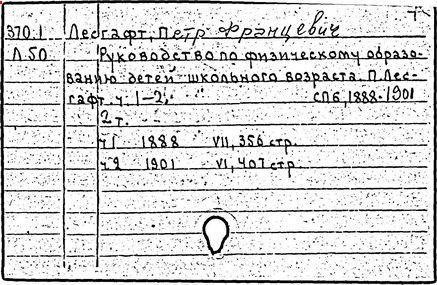 370.1 Лесгафт, Петр Францевич
Л.50 Руководство по физическому образо-
ванию детей школьного возраста. П. Лес-
гафт. ч. 1-2. СПб, 1888-1901
2 т.
ч.1 1888 VII, 356 стр.
ч.2 1901 VI, 407 стр.